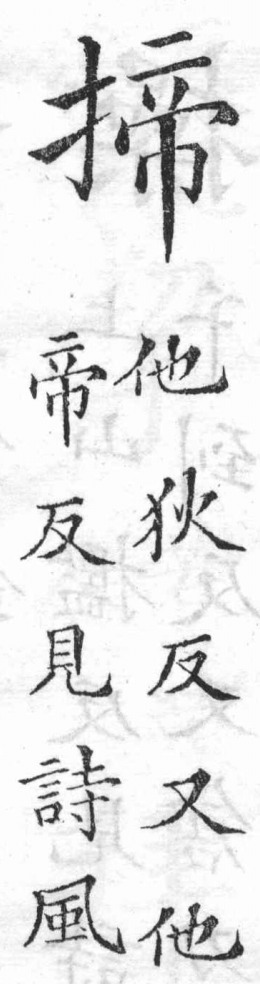 揥
他狄反又他
帝反見詩風